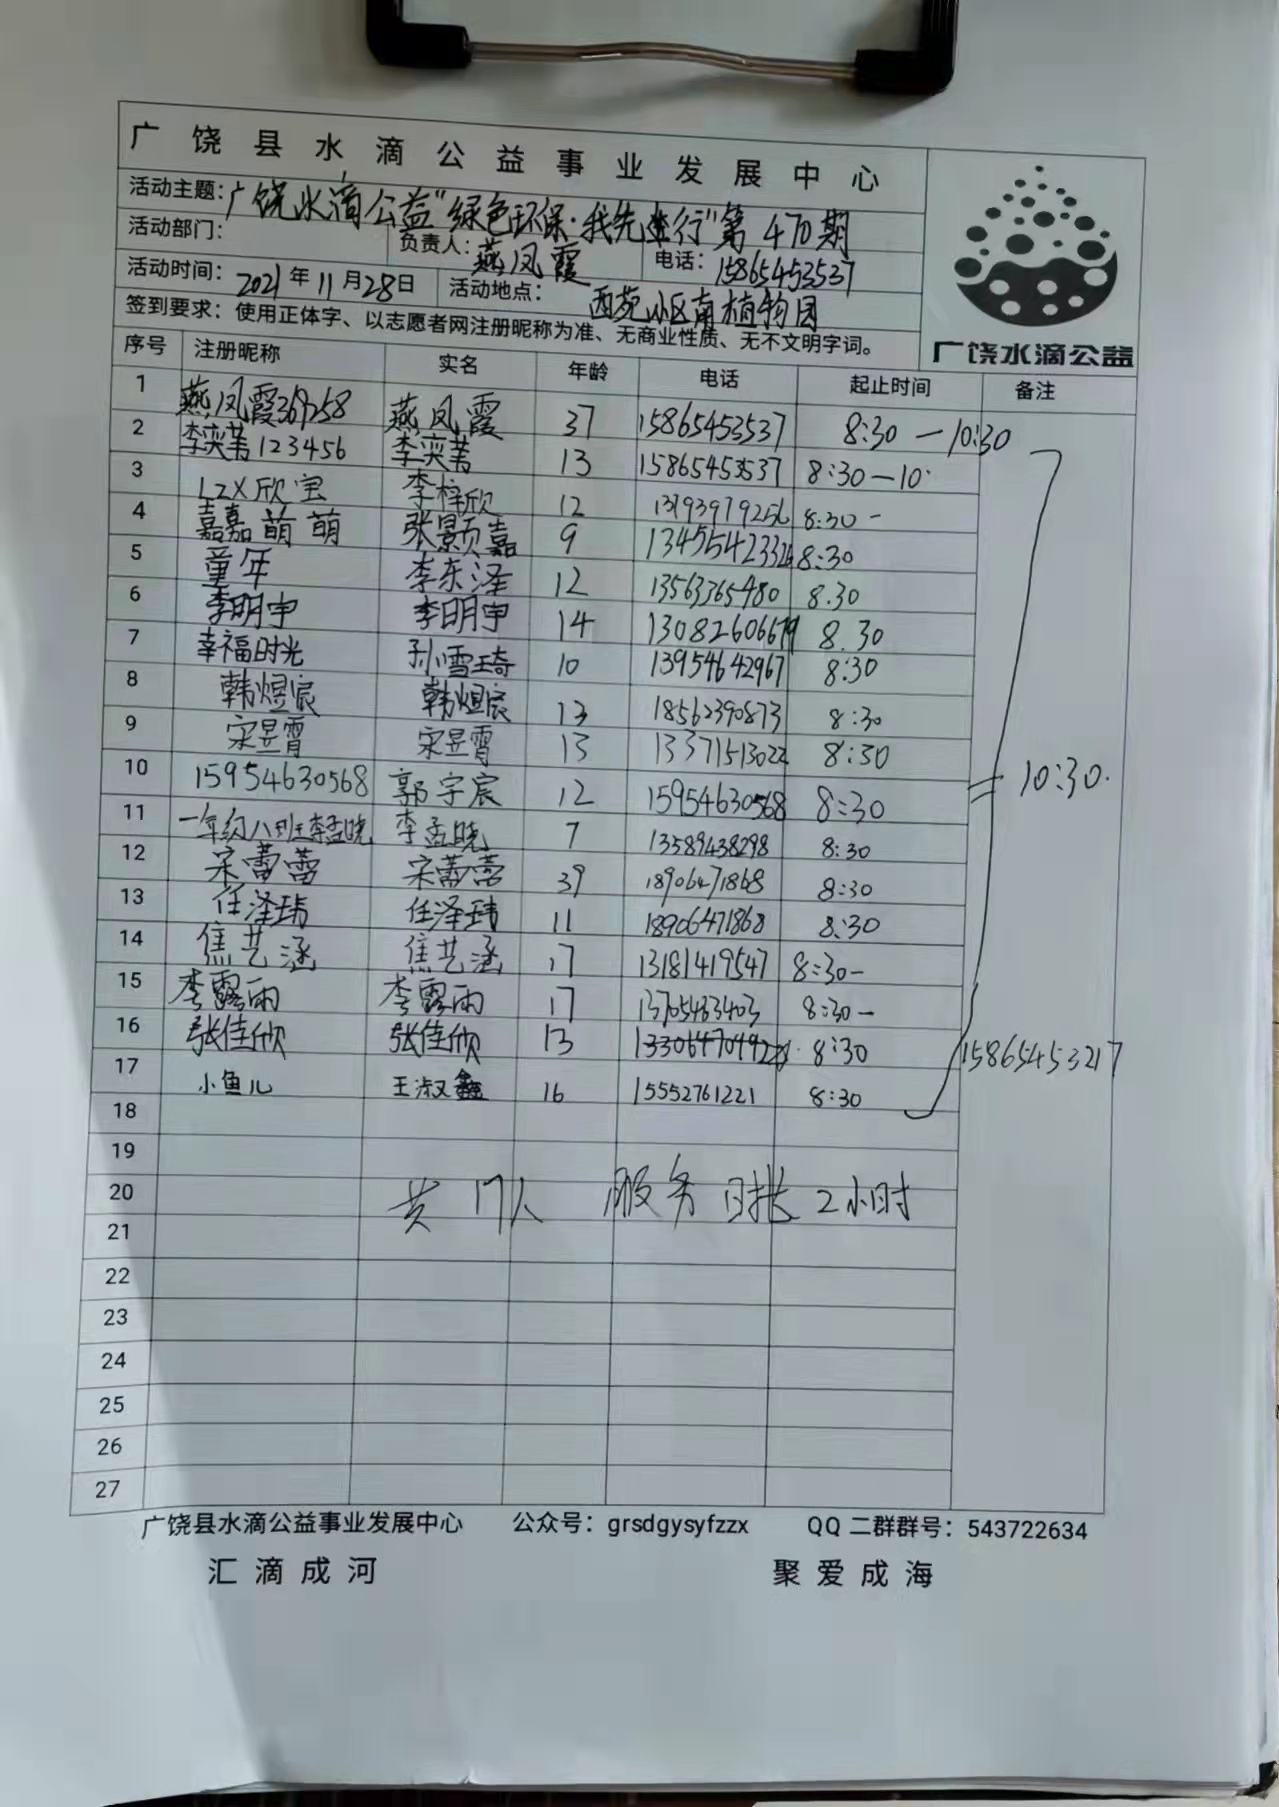 广饶县水滴公益事业发展中心
活动主题：广饶水滴公益“绿色环保·我先行”第470期
活动部门： 负责人：燕凤霞 电话：15865453537
活动时间：2021年11月28日 活动地点：西苑小区南植物园
签到要求：使用正体字、以志愿者网注册昵称为准、无商业性质、无不文明字词。
广饶水滴公益
序号 注册昵称 实名 年龄 电话 起止时间 备注
1 燕凤霞369258 燕凤霞 37 15865453537 8:30—10:30
2 李奕苇123456 李奕苇 13 15865453537 8:30—10:
3 LZX欣宝 李梓欣 12 13793979256 8:30-
4 嘉嘉萌萌 张颢嘉 9 8:30
5 童年 李东泽 12 13563365480 8.30
6 李明宇 李明宇 14 8.30
7 幸福时光 孙雪琦 10 13954642967 8:30
8 韩煜宸 韩煜宸 13 18562390873 8:30
9 宋昱霄 宋昱霄 13 13371513022 8:30
10 15954630568 郭宇宸 12 15954630568 8:30 10:30.
11 一年级八班李孟晓 李孟晓 7 13589438298 8:30
12 宋蕾蕾 宋蕾蕾 39 18906471868 8:30
13 任泽玮 任泽玮 11 18906471868 8:30
14 焦艺涵 焦艺涵 17 13181419547 8:30-
15 李露雨 李露雨 17 13705463403 8:30-
16 张佳欣 张佳欣 13 8:30 15865453217
17 小鱼儿 王淑鑫 16 15552761221 8:30
18
19
20 共17人 服务时长2小时
21
22
23
24
25
26
27
广饶县水滴公益事业发展中心 公众号：grsdgysyfzzx QQ二群群号：543722634
汇滴成河 聚爱成海